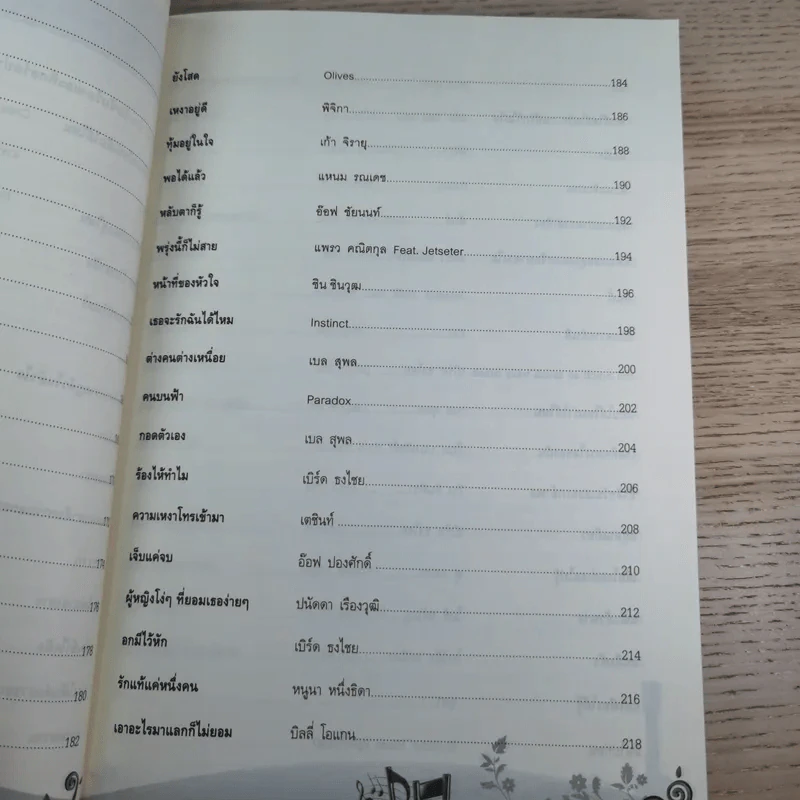 ยังโสด Olives 184
เหงาอยู่ดี พิจิกา 186
ทุ้มอยู่ในใจ เก้า จิรายุ 188
พอได้แล้ว แหนม รณเดช 190
หลับตาก็รู้ อ๊อฟ ชัยนนท์ 192
พรุ่งนี้ก็ไม่สาย แพรว คณิตกุล Feat. Jetseter 194
หน้าที่ของหัวใจ ชิน ชินวุฒ 196
เธอจะรักฉันได้ไหม Instinct 198
ต่างคนต่างเหนื่อย เบล สุพล 200
คนบนฟ้า Paradox 202
กอดตัวเอง เบล สุพล 204
ร้องไห้ทำไม เบิร์ด ธงไชย 206
ความเหงาโทรเข้ามา เตชินท์ 208
เจ็บแค่จบ อ๊อฟ ปองศักดิ์ 210
ผู้หญิงโง่ๆ ที่ยอมเธอง่ายๆ ปนัดดา เรืองวุฒิ 212
อกมีไว้หัก เบิร์ด ธงไชย 214
รักแท้แค่หนึ่งคน หนูนา หนึ่งธิดา 216
เอาอะไรมาแลกก็ไม่ยอม บิลลี่ โอแกน 218
174
176
178
180
182